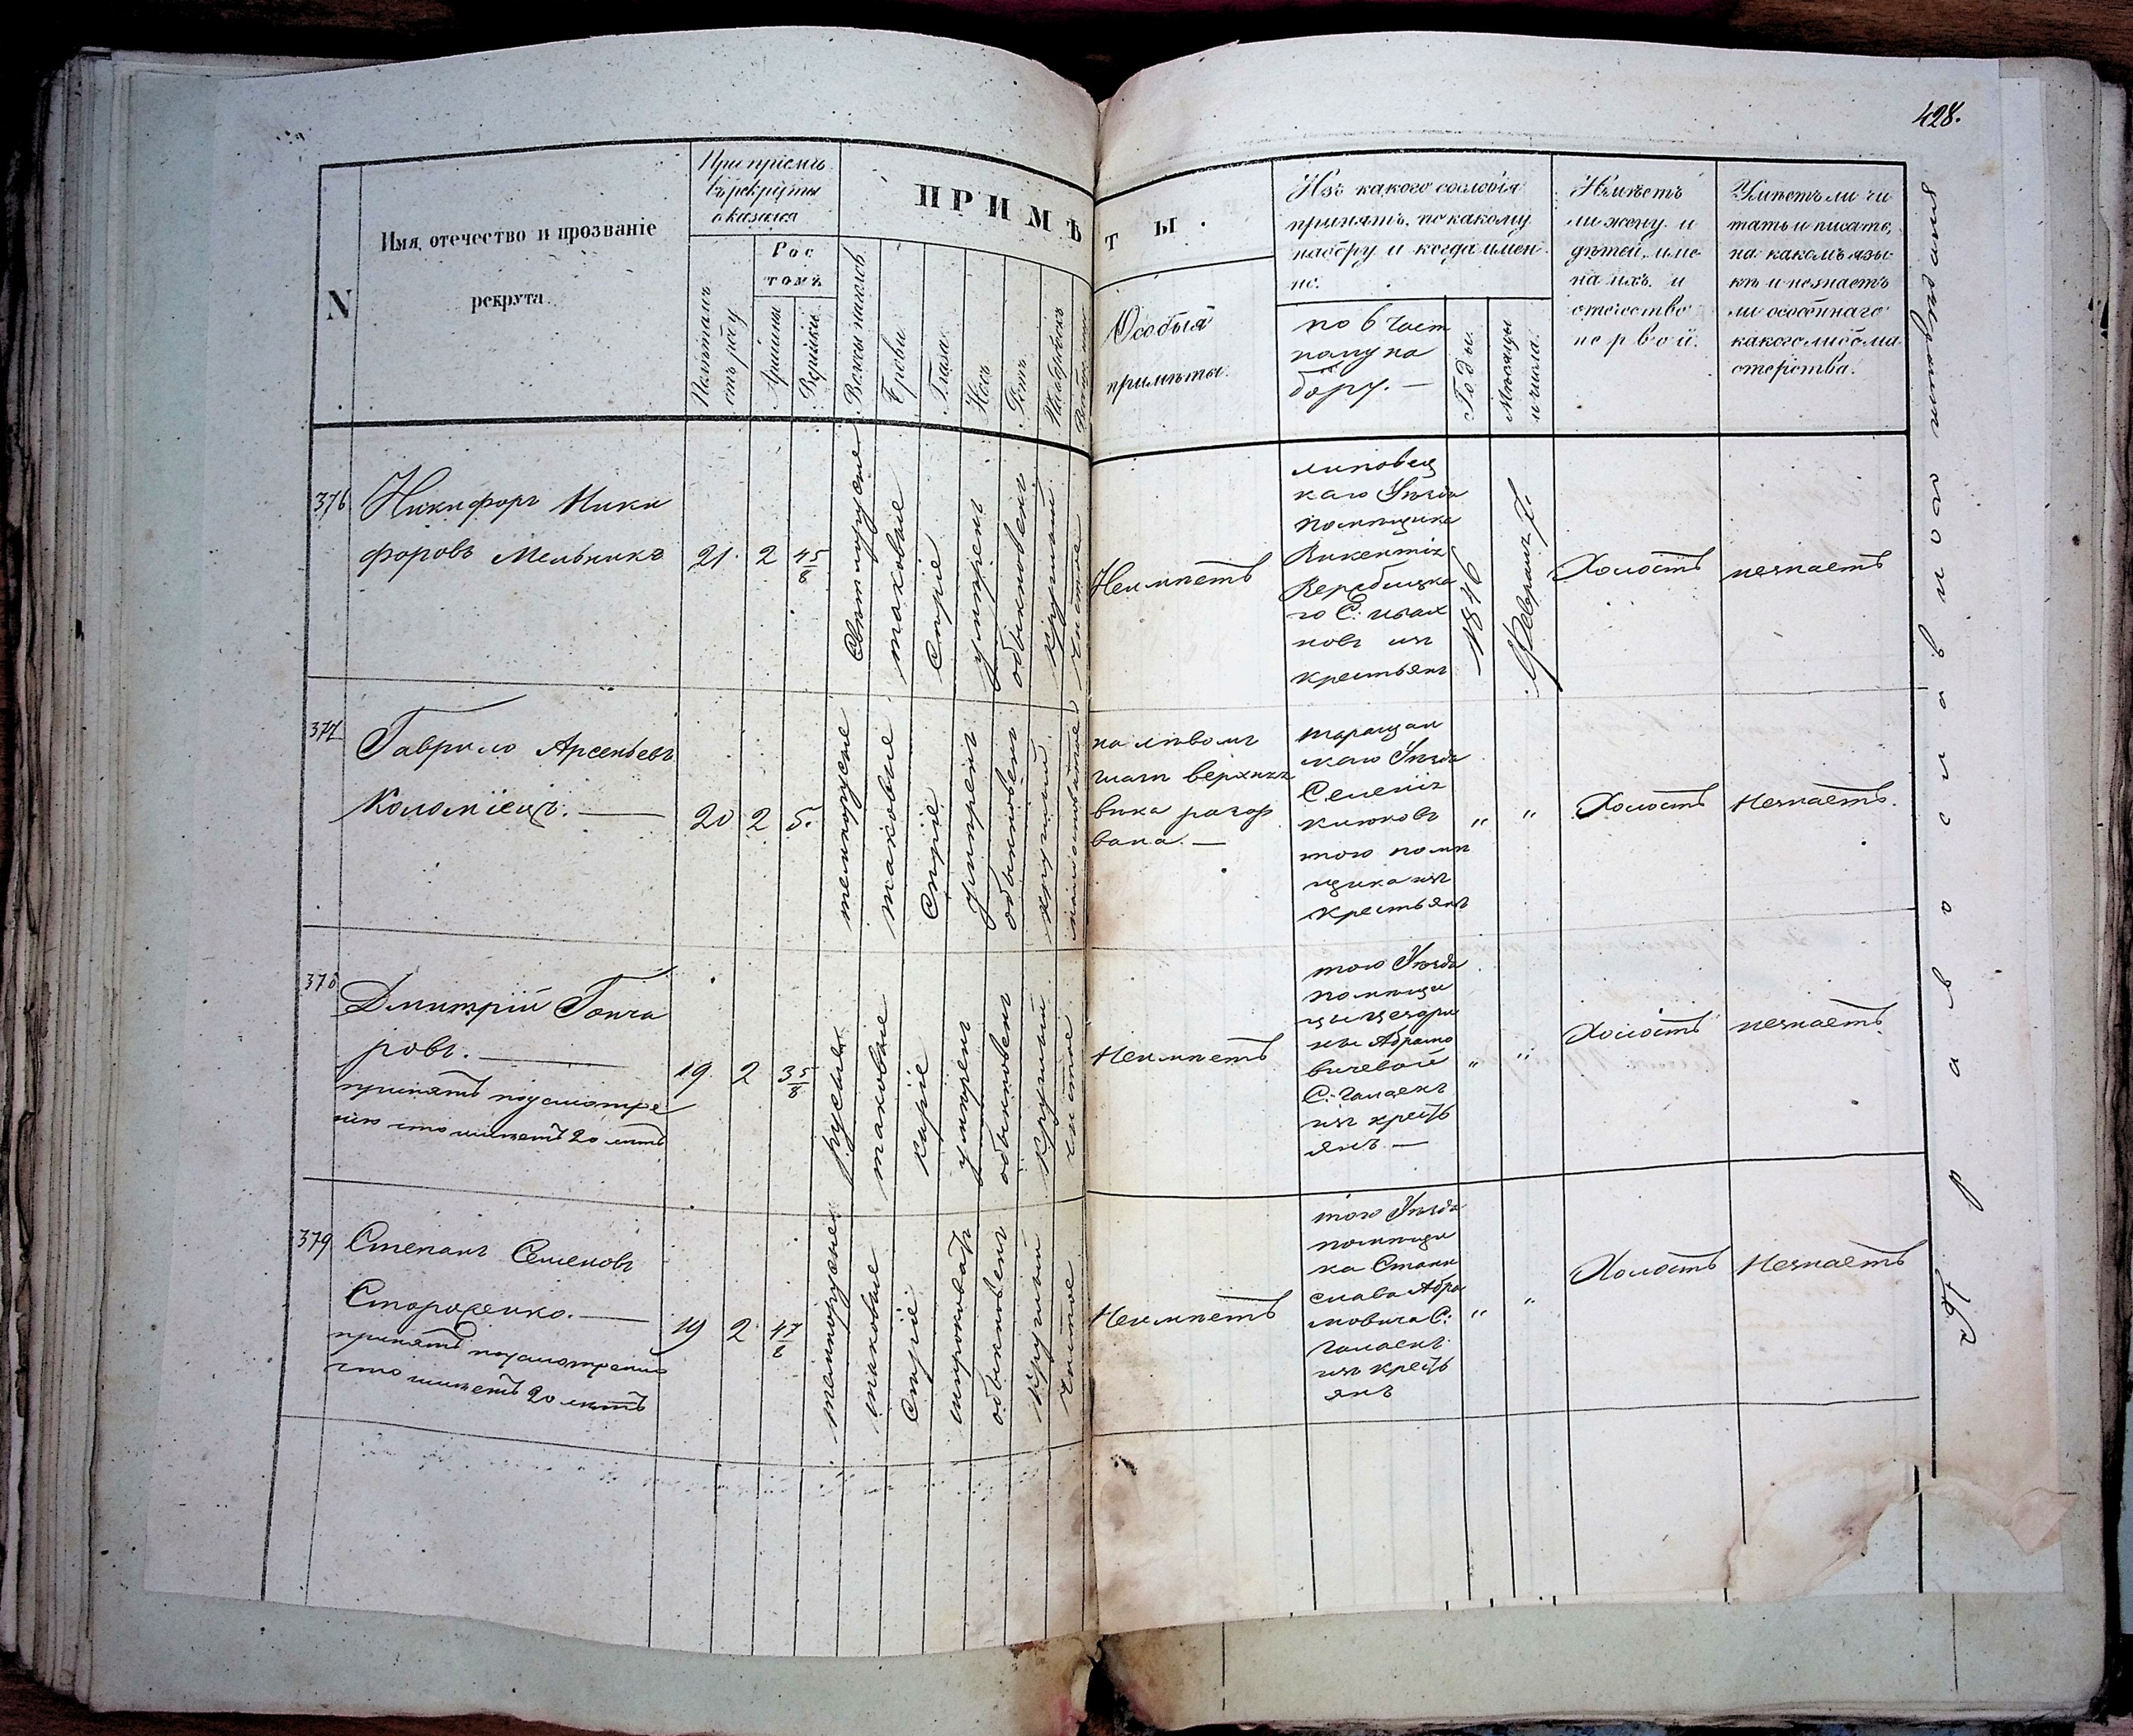 428.
N
Имя, отечество и прозваніе
рекрута.
При пріемѣ
въ рекруты
оказался
Рос
томъ
Аршины
Вершки
ПРИМѢ
Волосы
Брови
Глаза
Носъ
Ротъ
ТЫ.
Особыя
примѣты.
Изъ какого сословія
принятъ, по какому
набору и когда имен
но.
по 6 част
ному на
бору. —
Годы.
Мѣсяцы
и числа.
Имѣетъ
ли жену и
дѣтей, име
на ихъ и
отечество
первой.
Умѣетъ ли чи
тать и писать,
на какомъ язы
кѣ и незнаетъ
ли особеннаго
какого либо ма
стерства.
376
Никифоръ Ники
форовъ Мельникъ
21.
2
4 5/8
Свѣтлорусые
таковые
Сѣрые
умѣренъ
обыкновенъ
круглый
чистое
Неимѣетъ
липовец
каго Уѣзда
помѣщика
Викентія
каго С.
новъ изъ
крестьянъ
1846
Февраля 7.
Холостъ
незнаетъ
377
Гаврило Арсеньевъ
Коломіецъ. —
20
2
5.
темнорусые
таковые
Сѣріе
умѣренъ
обыкновенъ
круглый
на лѣвомъ
глазѣ верхняя
вѣка разор
вана. —
таращан
скаго Уѣзда
Селенія
того помѣ
щика изъ
крестьянъ
"
"
Холостъ
Незнаетъ.
378
Дмитрій Гонча
ровъ. —
принятъ по усмотре
нію что имѣетъ 20 лѣтъ
19
2
3 5/8
русые
таковые
каріе
умѣренъ
обыкновенъ
круглый
чистое
Неимѣетъ
того Уѣзда
помѣщи
цы Цезари
ны Абрамо
вичевой
С.
изъ кресть
янъ. —
"
"
Холостъ
незнаетъ
379
Степанъ Семеновъ
Стороженко. —
принятъ по усмотренію
что имѣетъ 20 лѣтъ
19
2
4 7/8
темнорусые
таковые
Сѣріе
широковатъ
обыкновенъ
круглый
чистое
Неимѣетъ
того Уѣзда
помѣщи
ка Стани
слава Абра
мовича С:
изъ кресть
янъ
"
"
Холостъ
Незнаетъ